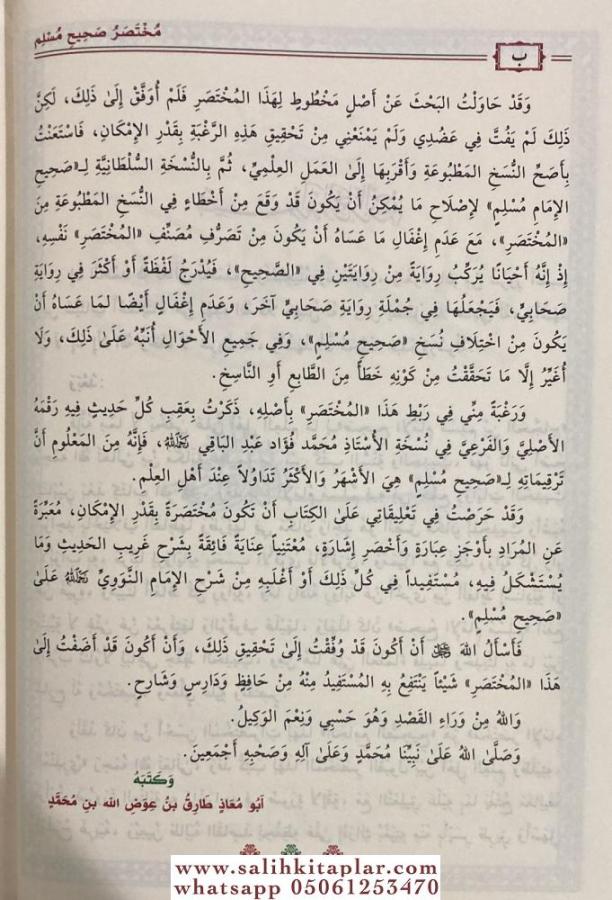 مُخْتَصَرُ صَحِيحِ مُسْلِمٍ
ب
وَقَدْ حَاوَلْتُ البَحْثَ عَنْ أَصْلٍ مَخْطُوطٍ لِهَذَا المُخْتَصَرِ فَلَمْ أُوَفَّقْ إِلَىٰ ذَلِكَ، لَكِنَّ
ذَلِكَ لَمْ يَفُتَّ فِي عَضُدِي وَلَمْ يَمْنَعْنِي مِنْ تَحْقِيقِ هَذِهِ الرَّغْبَةِ بِقَدْرِ الإِمْكَانِ، فَاسْتَعَنْتُ
بِأَصَحِّ النُّسَخِ المَطْبُوعَةِ وَأَقْرَبِهَا إِلَىٰ العَمَلِ العِلْمِيِّ، ثُمَّ بِالنُّسْخَةِ السُّلْطَانِيَّةِ لِـ«صَحِيحِ
الإِمَامِ مُسْلِمٍ» لِإِصْلَاحِ مَا يُمْكِنُ أَنْ يَكُونَ قَدْ وَقَعَ مِنْ أَخْطَاءٍ فِي النُّسَخِ المَطْبُوعَةِ مِنَ
«المُخْتَصَرِ»، مَعَ عَدَمِ إِغْفَالِ مَا عَسَاهُ أَنْ يَكُونَ مِنْ تَصَرُّفِ مُصَنِّفِ «المُخْتَصَرِ» نَفْسِهِ،
إِذْ إِنَّهُ أَحْيَانًا يُرَكِّبُ رِوَايَةً مِنْ رِوَايَتَيْنِ فِي «الصَّحِيحِ»، فَيُدْرِجُ لَفْظَةً أَوْ أَكْثَرَ فِي رِوَايَةِ
صَحَابِيٍّ، فَيَجْعَلُهَا فِي جُمْلَةِ رِوَايَةِ صَحَابِيٍّ آخَرَ، وَعَدَمِ إِغْفَالٍ أَيْضًا لِمَا عَسَاهُ أَنْ
يَكُونَ مِنْ اخْتِلَافِ نُسَخِ «صَحِيحِ مُسْلِمٍ»، وَفِي جَمِيعِ الأَحْوَالِ أُنَبِّهُ عَلَىٰ ذَلِكَ، وَلَا
أُغَيِّرُ إِلَّا مَا تَحَقَّقْتُ مِنْ كَوْنِهِ خَطَأً مِنَ الطَّابِعِ أَوِ النَّاسِخِ.
وَرَغْبَةً مِنِّي فِي رَبْطِ هَذَا «المُخْتَصَرِ» بِأَصْلِهِ، ذَكَرْتُ بِعَقِبِ كُلِّ حَدِيثٍ فِيهِ رَقْمَهُ
الأَصْلِيَّ وَالفَرْعِيَّ فِي نُسْخَةِ الأُسْتَاذِ مُحَمَّد فُؤَاد عَبْدِ البَاقِي رَحِمَهُ اللهُ، فَإِنَّهُ مِنَ المَعْلُومِ أَنَّ
تَرْقِيمَاتِهِ لِـ«صَحِيحِ مُسْلِمٍ» هِيَ الأَشْهَرُ وَالأَكْثَرُ تَدَاوُلًا عِنْدَ أَهْلِ العِلْمِ.
وَقَدْ حَرَصْتُ فِي تَعْلِيقَاتِي عَلَىٰ الكِتَابِ أَنْ تَكُونَ مُخْتَصَرَةً بِقَدْرِ الإِمْكَانِ، مُعَبِّرَةً
عَنِ المُرَادِ بِأَوْجَزِ عِبَارَةٍ وَأَخْصَرِ إِشَارَةٍ، مُعْتَنِياً عِنَايَةً فَائِقَةً بِشَرْحِ غَرِيبِ الحَدِيثِ وَمَا
يُسْتَشْكَلُ فِيهِ، مُسْتَفِيداً فِي كُلِّ ذَلِكَ أَوْ أَغْلَبِهِ مِنْ شَرْحِ الإِمَامِ النَّوَوِيِّ رَحِمَهُ اللهُ عَلَىٰ
«صَحِيحِ مُسْلِمٍ».
فَأَسْأَلُ اللهَ ﷻ أَنْ أَكُونَ قَدْ وُفِّقْتُ إِلَىٰ تَحْقِيقِ ذَلِكَ، وَأَنْ أَكُونَ قَدْ أَضَفْتُ إِلَىٰ
هَذَا «المُخْتَصَرِ» شَيْئاً يَنْتَفِعُ بِهِ المُسْتَفِيدُ مِنْهُ مِنْ حَافِظٍ وَدَارِسٍ وَشَارِحٍ.
وَاللهُ مِنْ وَرَاءِ القَصْدِ وَهُوَ حَسْبِي وَنِعْمَ الوَكِيلُ.
وَصَلَّىٰ اللهُ عَلَىٰ نَبِيِّنَا مُحَمَّدٍ وَعَلَىٰ آلِهِ وَصَحْبِهِ أَجْمَعِينَ.
وَكَتَبَهُ
أَبُو مُعَاذٍ طَارِقُ بْنُ عِوَضِ اللهِ بنِ مُحَمَّدٍ
www.salihkitaplar.com
whatsapp 05061253470